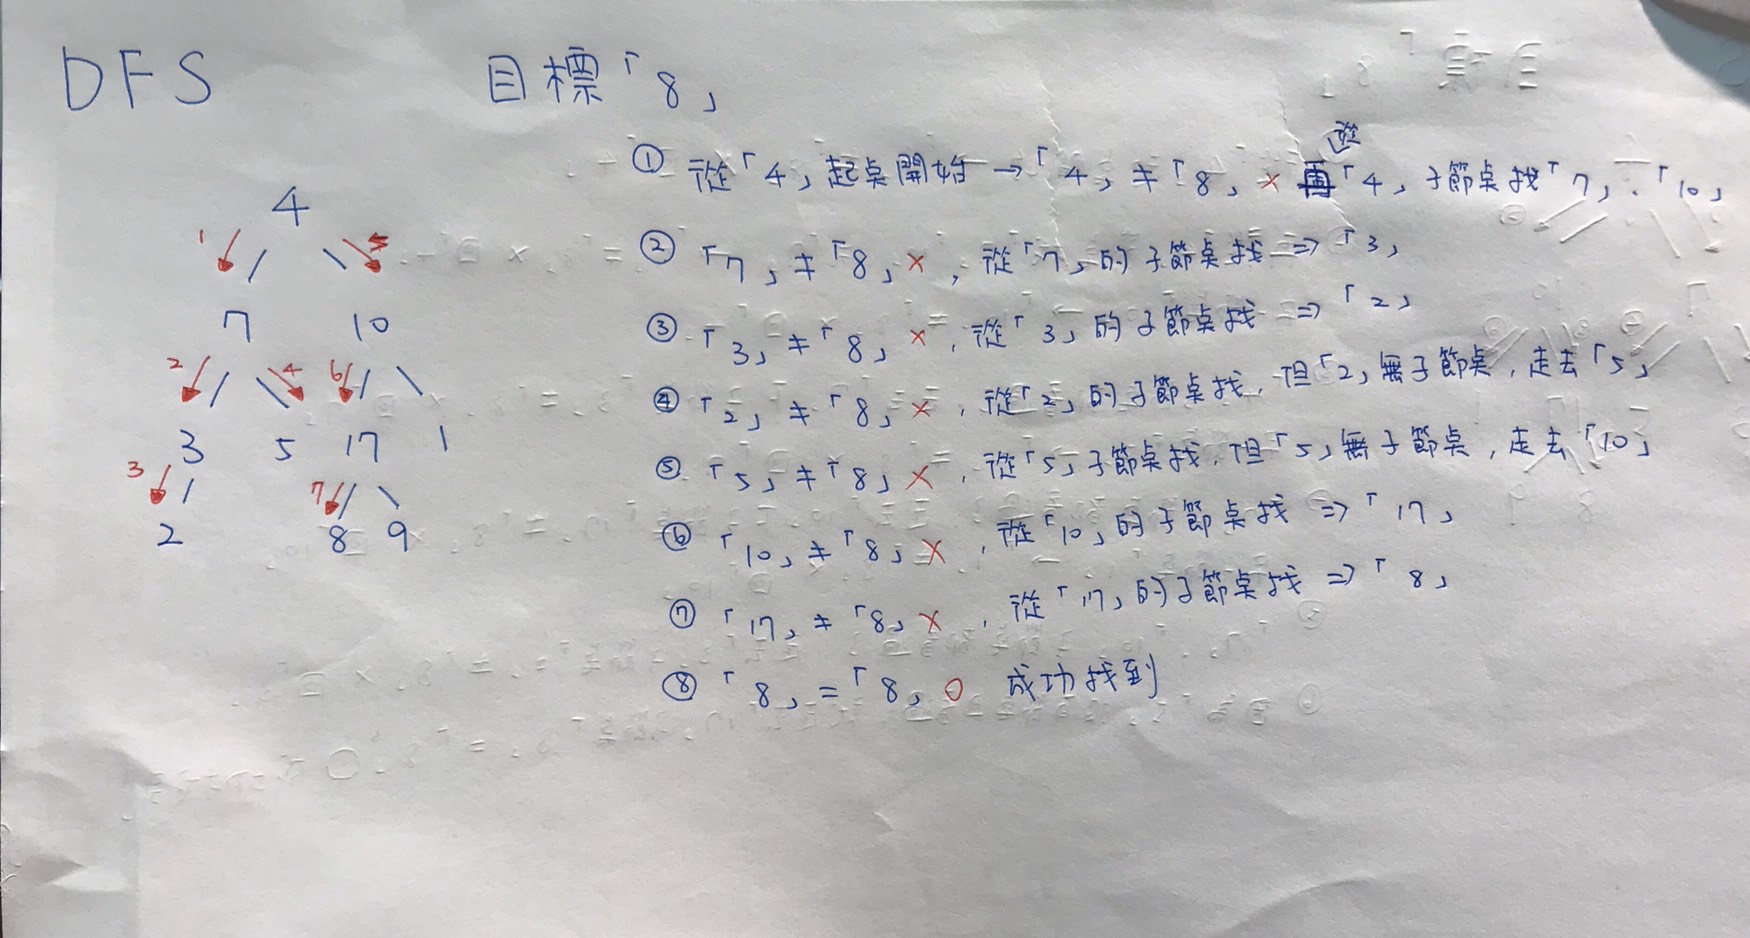 DFS
目標「8」
4
1 5
7 10
2 4 6
3 5 17 1
3 7
2 8 9
① 從「4」起點開始 →「4」≠「8」× 從「4」子節點找「7」、「10」
② 「7」≠「8」×,從「7」的子節點找 ⇒「3」
③ 「3」≠「8」×,從「3」的子節點找 ⇒「2」
④ 「2」≠「8」×,從「2」的子節點找,但「2」無子節點,走去「5」
⑤ 「5」≠「8」×,從「5」子節點找,但「5」無子節點,走去「10」
⑥ 「10」≠「8」×,從「10」的子節點找 ⇒「17」
⑦ 「17」≠「8」×,從「17」的子節點找 ⇒「8」
⑧ 「8」=「8」○ 成功找到